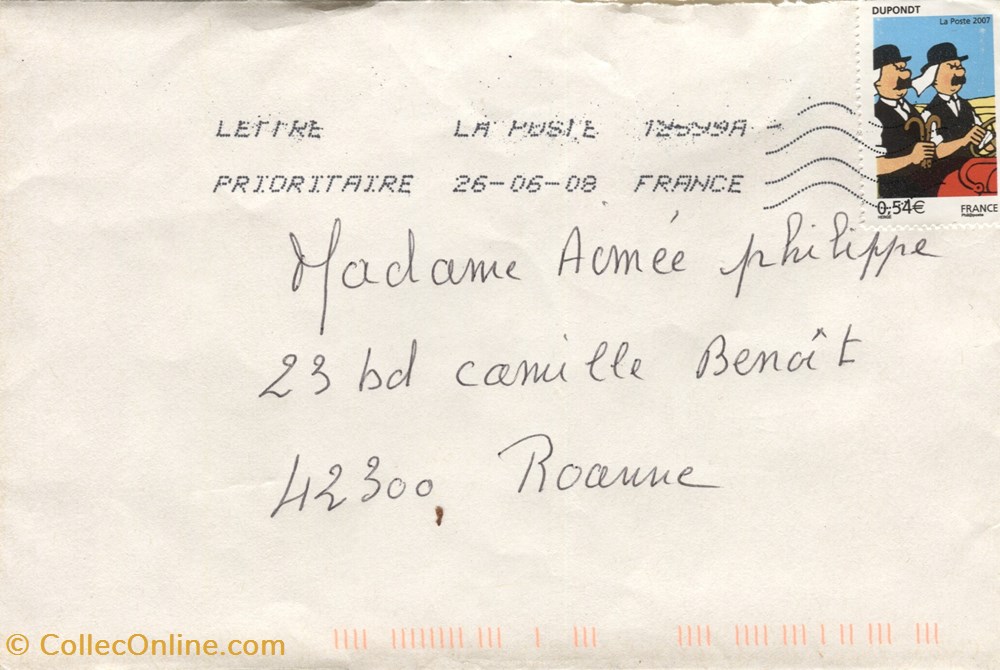 DUPONDT
La Poste 2007
LETTRE LA POSTE
PRIORITAIRE 26-06-08 FRANCE
0,54€ FRANCE
Madame Aimée philippe
23 bd camille Benoît
42300 Roanne
© CollecOnline.com